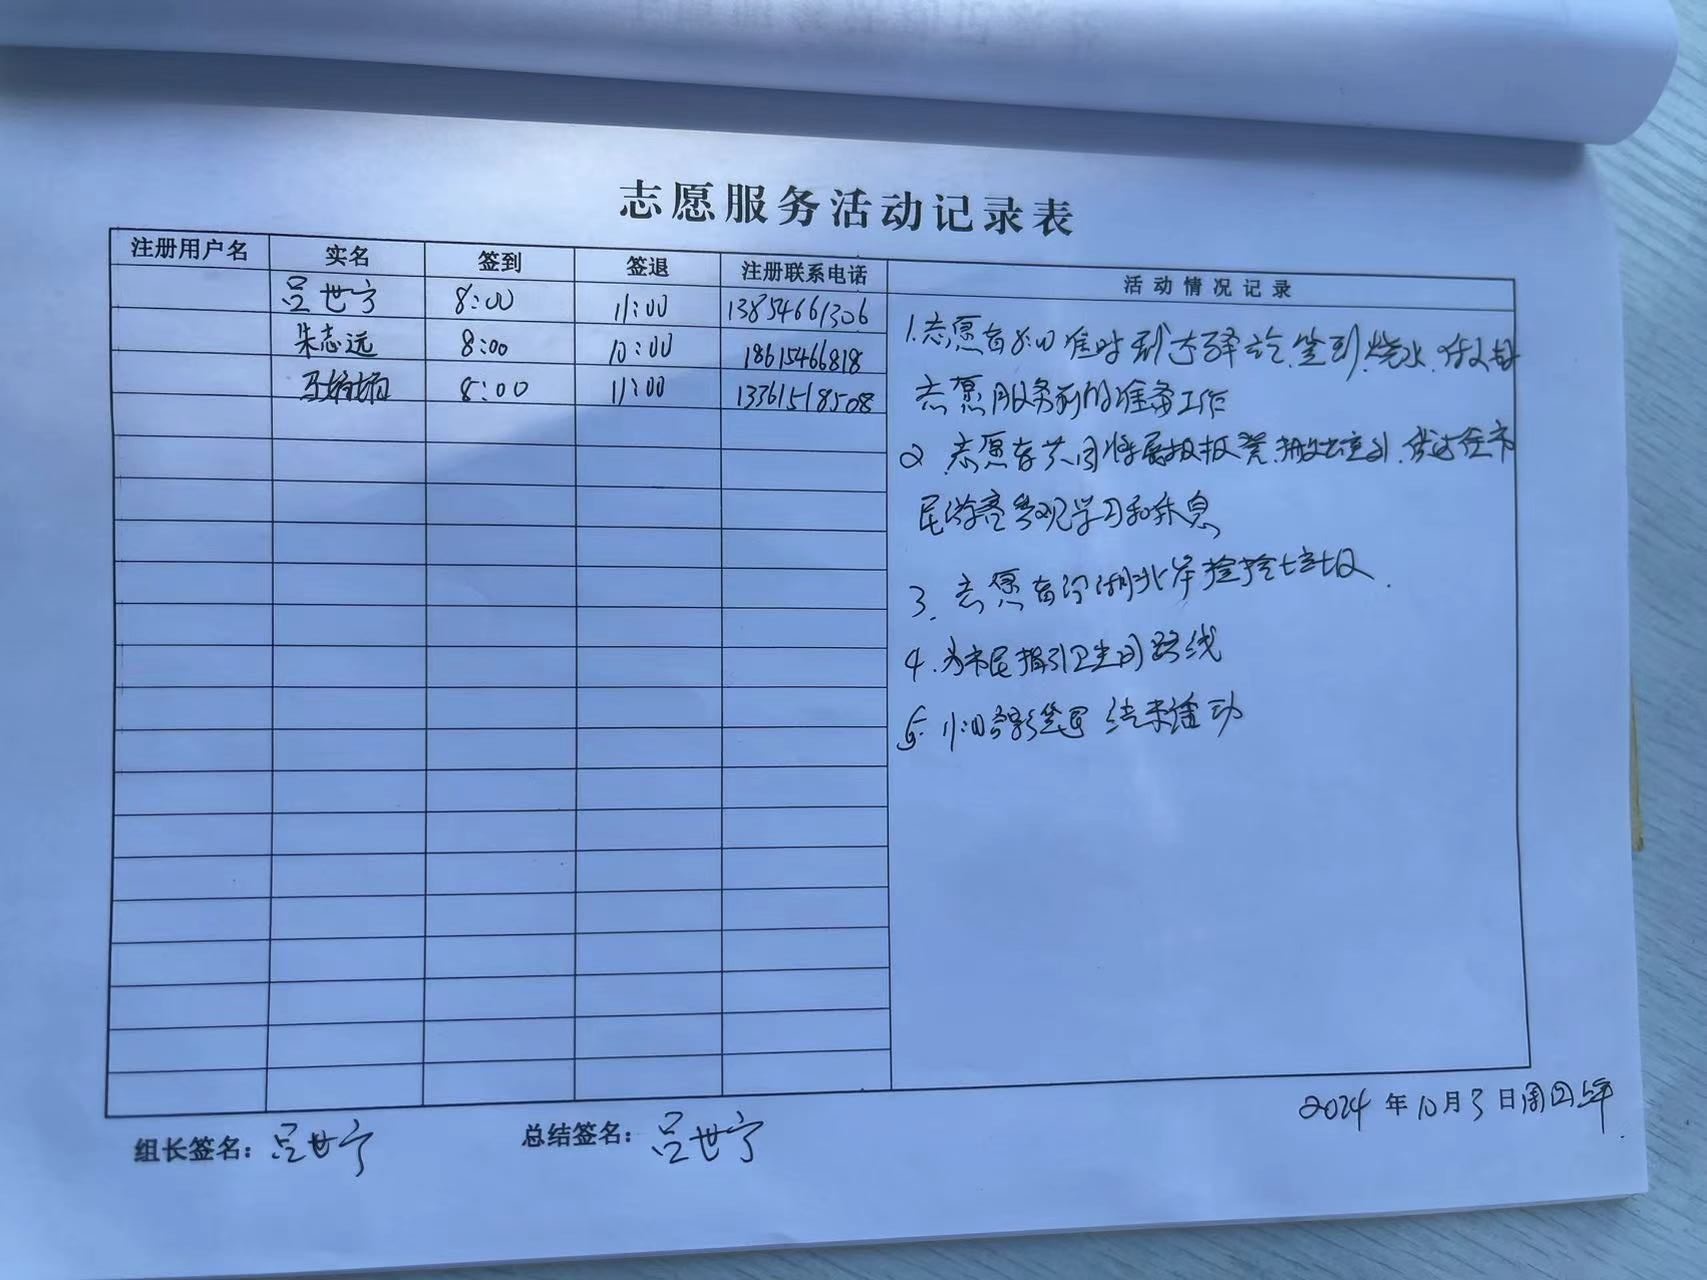 志愿服务活动记录表
注册用户名 实名 签到 签退 注册联系电话 活动情况记录
吕世宁 8:00 11:00 13854661306
朱志远 8:00 10:00 18615466818
马 8:00 11:00 13361518508
1.志愿者8:00准时到达驿站.签到.烧水.做好
志愿服务前的准备工作
2.志愿者共同将展板板凳搬出室外.供过往市
民游客参观学习和休息
3.志愿者沿湖北岸捡拾垃圾.
4.为市民指引卫生间路线
5.11:00合影签退 结束活动
组长签名:吕世宁 总结签名:吕世宁 2024年10月3日周四上午